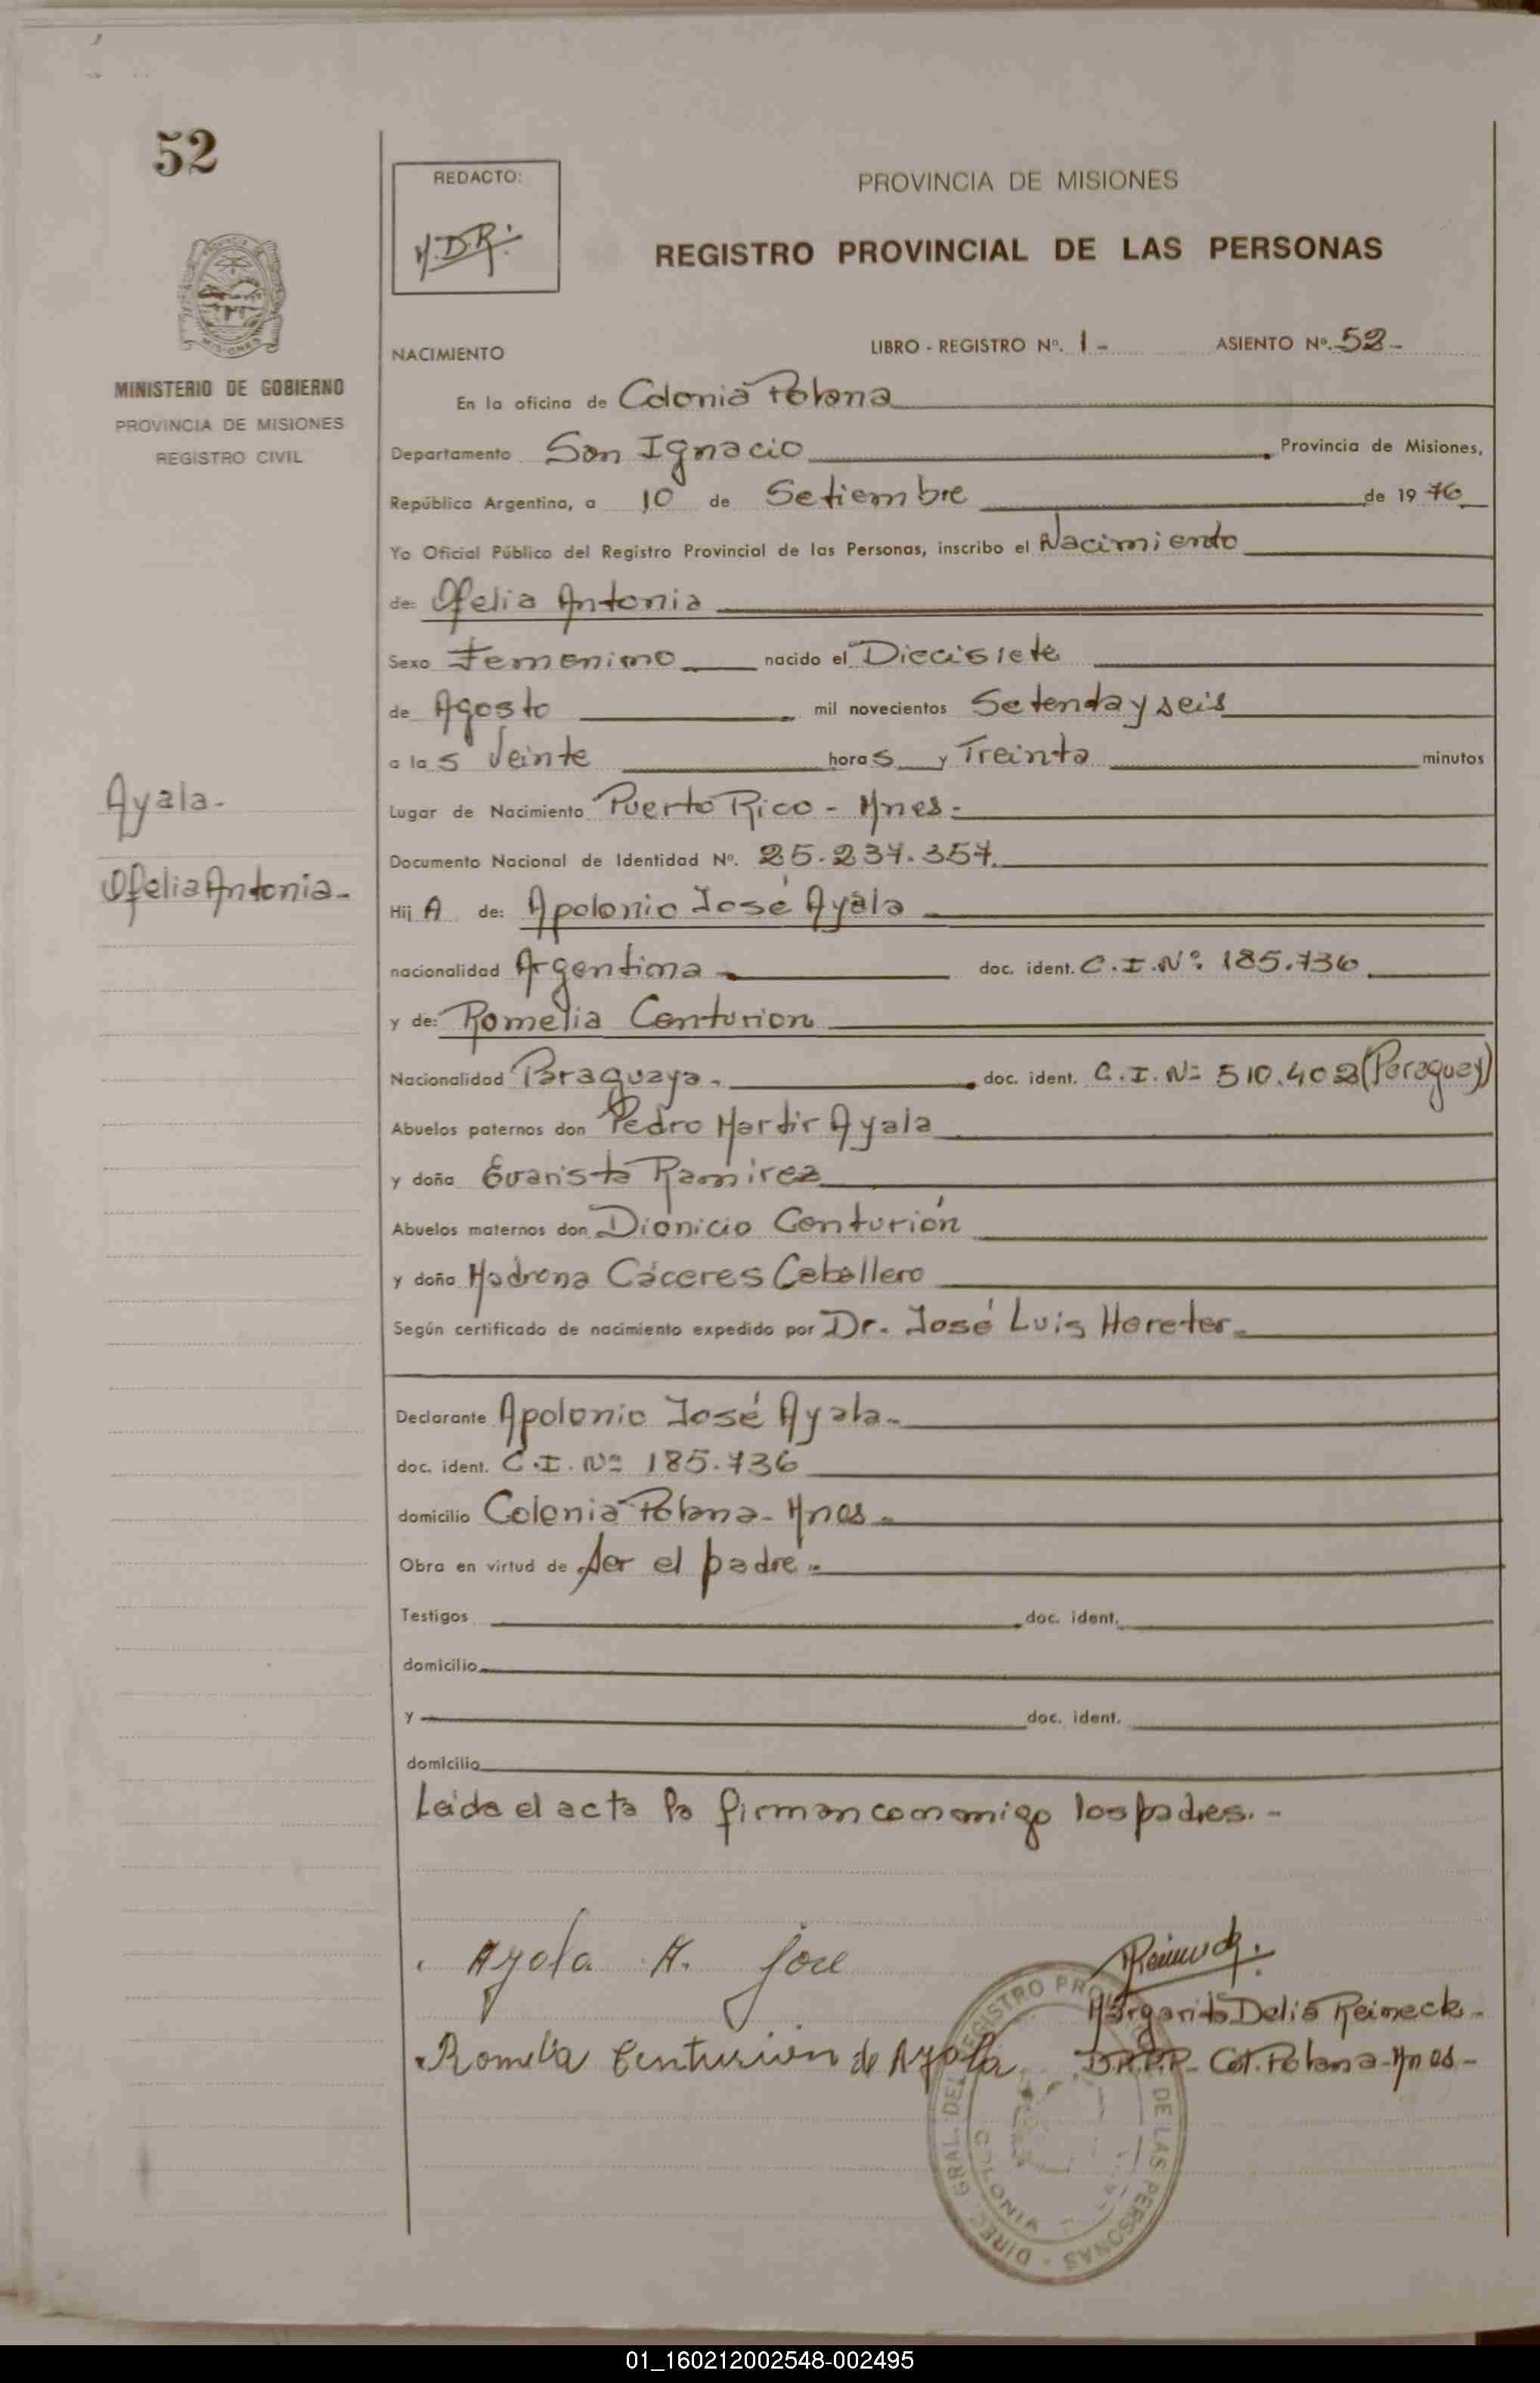 52
REDACTO:
PROVINCIA DE MISIONES
M.D.R.
REGISTRO PROVINCIAL DE LAS PERSONAS
MISIONES
MINISTERIO DE GOBIERNO
PROVINCIA DE MISIONES
REGISTRO CIVIL
NACIMIENTO LIBRO - REGISTRO Nº. 1 - ASIENTO Nº. 52 -
En la oficina de Colonia Polana
Departamento San Ignacio Provincia de Misiones,
República Argentina, a 10 de Setiembre de 19 76
Yo Oficial Público del Registro Provincial de las Personas, inscribo el Nacimiento
de: Ofelia Antonia
Sexo Femenino nacido el Diecisiete
de Agosto mil novecientos Setenta y seis
a las Veinte horas y Treinta minutos
Ayala-
Lugar de Nacimiento Puerto Rico - Mnes.-
Documento Nacional de Identidad Nº. 25.237.357.
Ofelia Antonia-
Hij A de: Apolonio José Ayala
nacionalidad Argentina doc. ident. C.I.Nº. 185.736
y de: Romelia Centurion
Nacionalidad Paraguaya. doc. ident. C.I.Nº 510.402 (Paraguay)
Abuelos paternos don Pedro Martir Ayala
y doña Evarista Ramirez
Abuelos maternos don Dionicio Centurión
y doña Madrona Cáceres Caballero
Según certificado de nacimiento expedido por Dr. José Luis Horeter.
Declarante Apolonio José Ayala.-
doc. ident. C.I.Nº 185.736
domicilio Colonia Polana- Mnes.-
Obra en virtud de ser el padre.-
Testigos doc. ident.
domicilio
y doc. ident.
domicilio
Leida el acta la firman conmigo los padres.-
Ayala A. Jose
Margarita Delia Reineck-
Romelia Centurion de Ayala
D.R.P.P- Col. Polana-Mnes-
DIREC. GRAL. DEL REGISTRO PROV. DE LAS PERSONAS
COLONIA
01_160212002548-002495